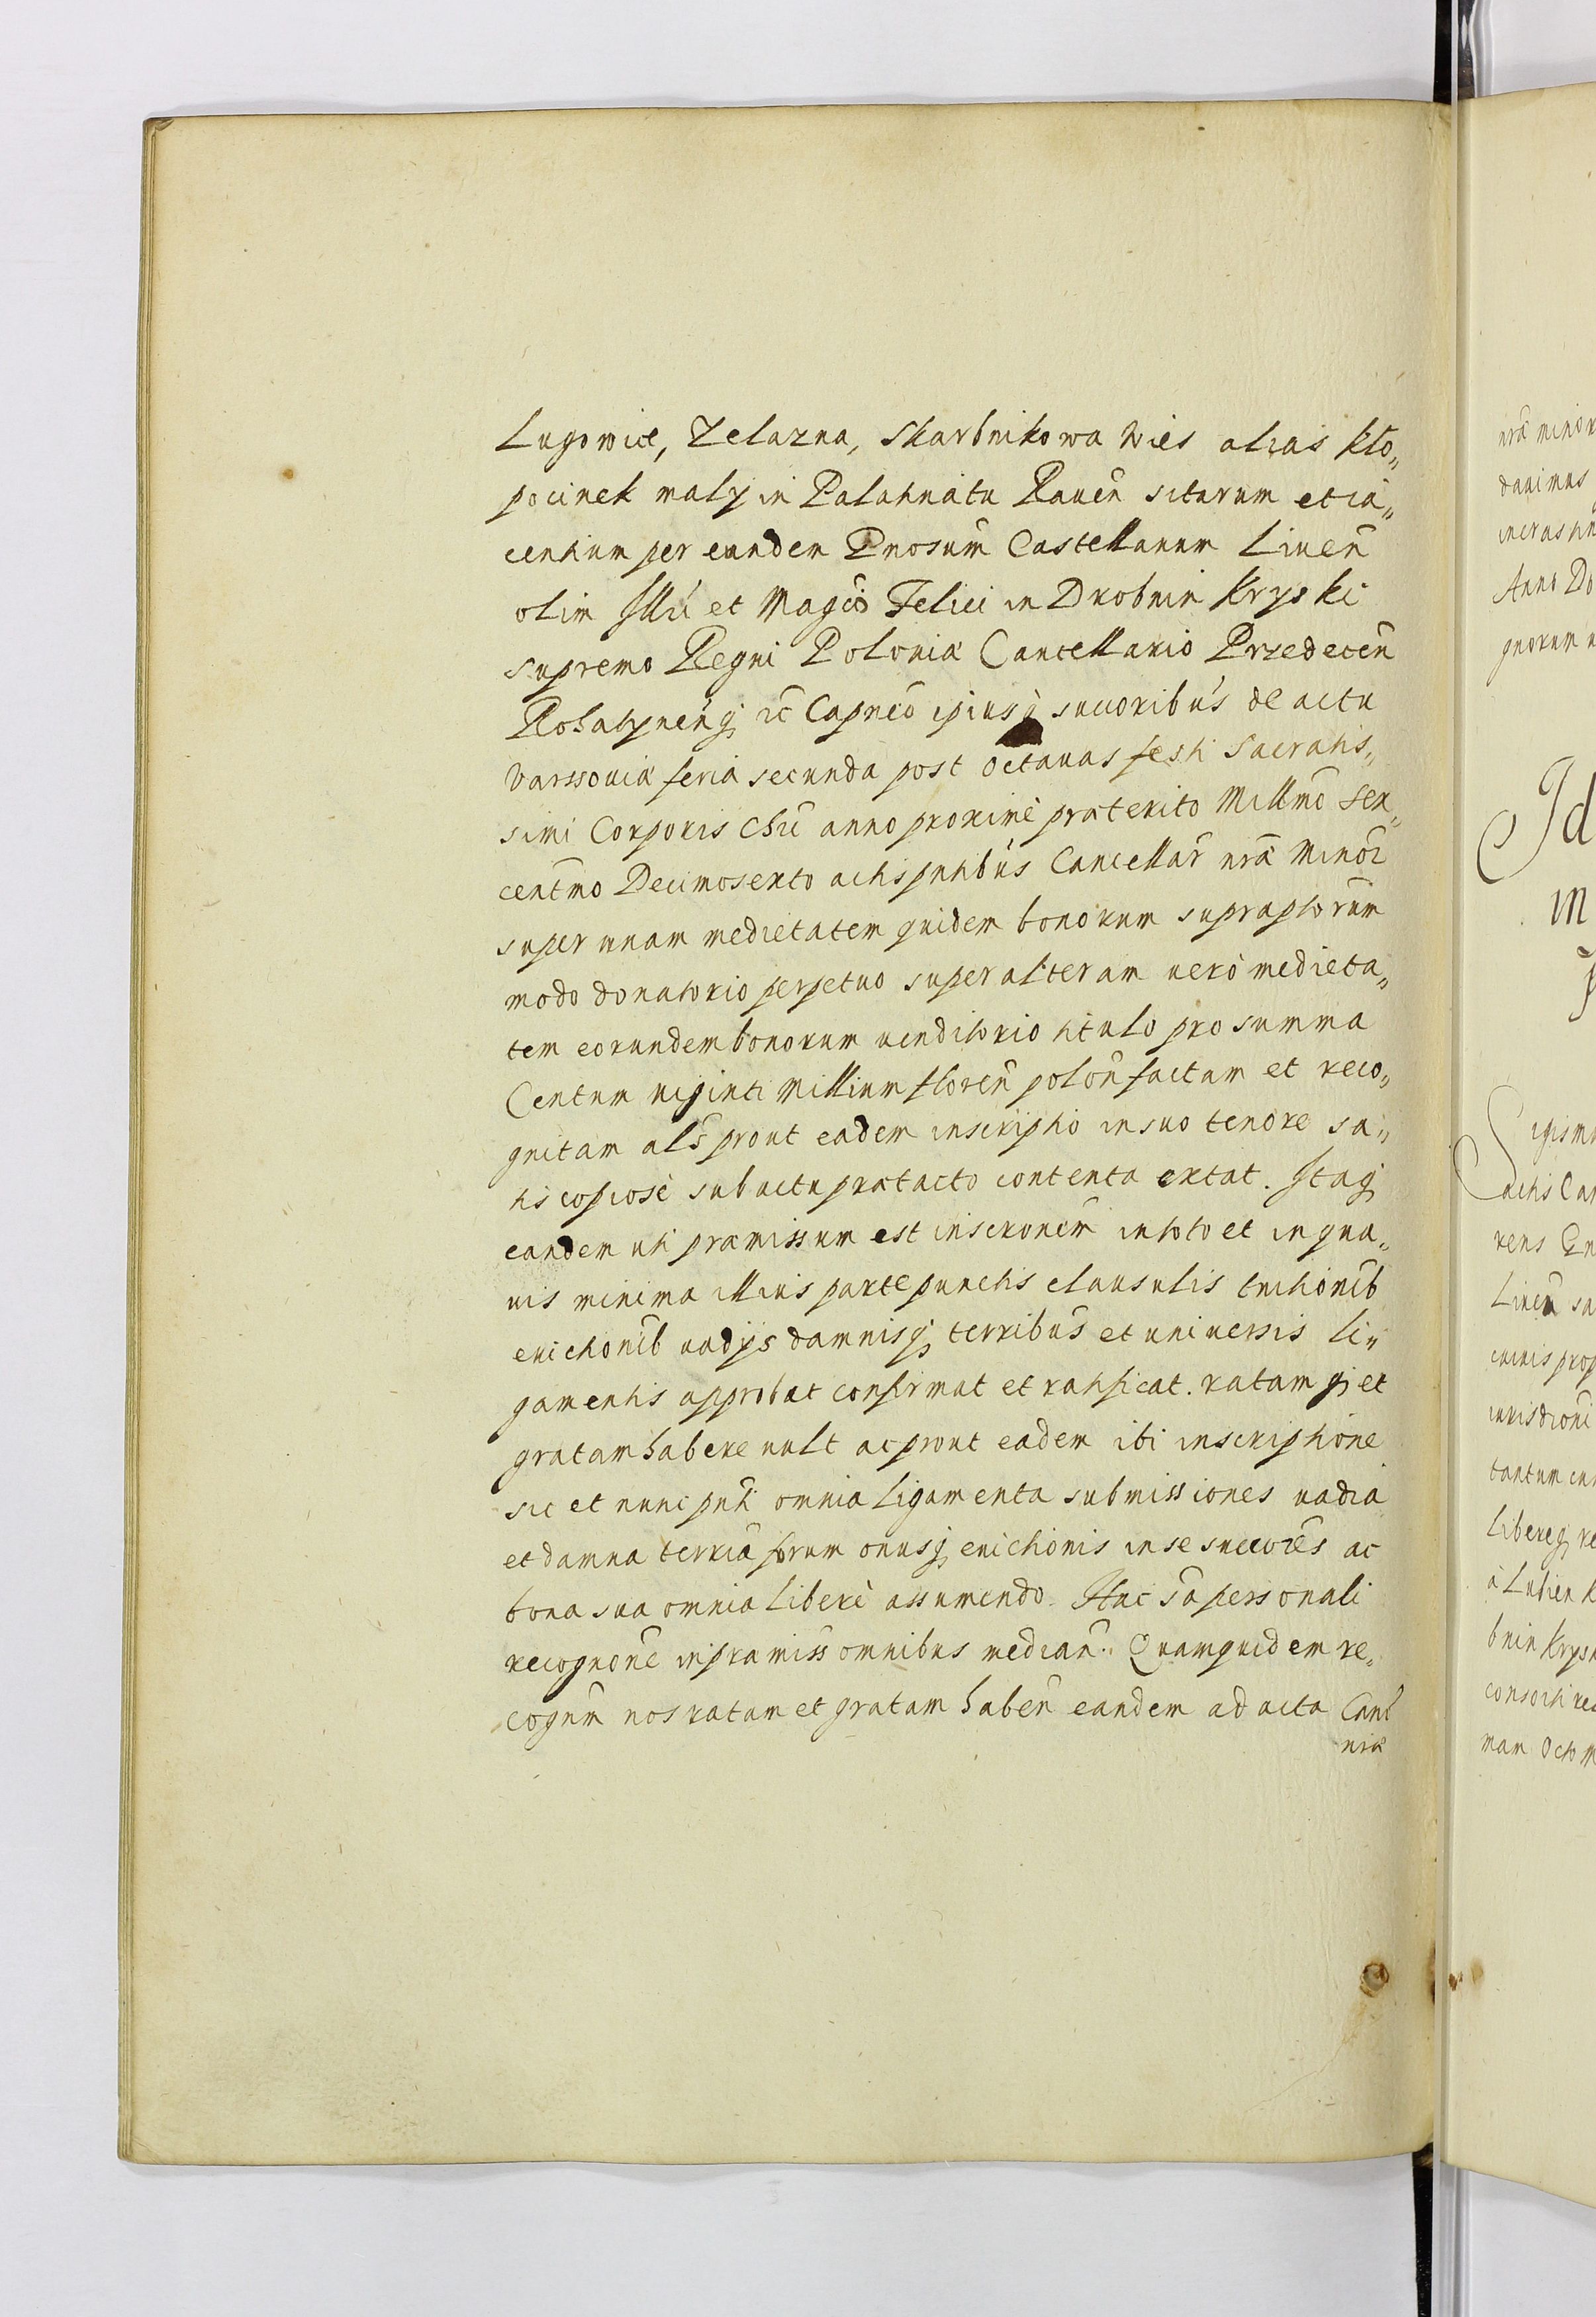 Lugowice, Zelazna, Skarbnikowa Wies alias Kło„
pocinek mały in Palatinatu Raueñ sitarum et ia„
centium per eundem Gnosum Castellanum Liueñ
olim Illri et Magco Felici in Drobnin Kryski
supremo Regni Poloniæ Cancellario Przedeceñ
Rohatyneñq; &c Capneo ipiusq; succoribus de actu
Varssouiæ feria secunda post octauas festi Sacratis„
simi Corporis Chri anno proximè præterito Millmo Sex„
centmo Decimosexto actis pntibus Cancellar nræ Minor
super unam medietatem quidem bonorum supraptorum
modo donatorio perpetuo super alteram uerò medieta„
tem eorundem bonorum uenditorio titulo pro summa
Centum uiginti Millium floreñ poloñ factam et reco„
gnitam als prout eadem inscriptio in suo tenore sa„
tis copiosè sub actu prætacto contenta extat. Itaq;
eandem uti præmissum est inscronem in toto et in qua„
uis minima illius parte punctis clausulis tuitionib
euictionib uadijs damnisq; terribus et uniuersis li„
gamentis approbat confirmat et ratificat. ratamq; et
gratam habere uult ac prout eadem ibi inscriptione
sic et nunc pnti omnia ligamenta submissiones uadia
et damna terria forum onusq; euictionis in se succores ac
bona sua omnia liberè assumendo. Hac sa personali
recognone in præmiss omnibus mediañ. Quamquidem re„
cognm nos ratam et gratam habeñ eandem ad acta Canc
nræ
nrã minor
dauimus
in crastin
Anno Do
gnorum n
Id
in
Sigism
actis Can
rens Gn
Liueñ sa
cuiuis prop
iurisdioni
tantum cum
Libereq; re
à Lubien K
bnin Krys
consorti rec
mam Octo m